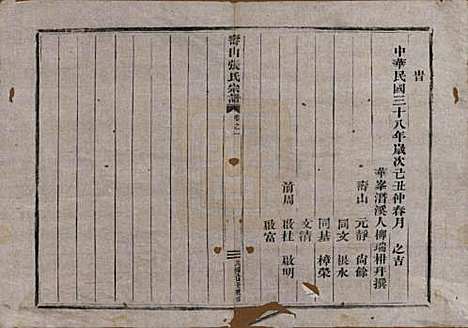 旹
中華民國三十八年歲次己丑仲春月　之吉
華峯潛溪人柳瑞柑拜撰
壽山　元靜　尙餘
同文　永
同基　樟榮
文清
前周　啟桂　啟明
啟富
壽山張氏宗譜　卷之一